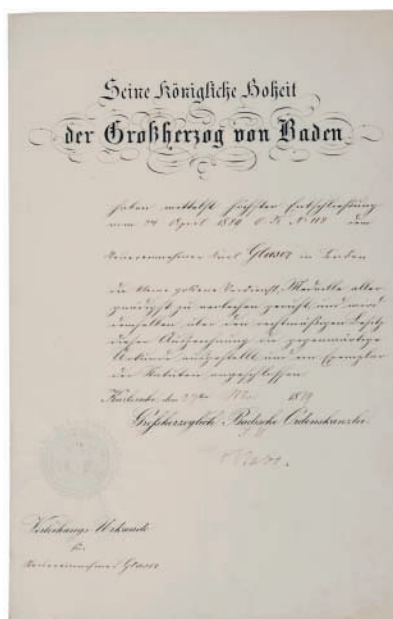 Seine Königliche Hoheit
der Großherzog von Baden
haben mittelst höchster Entschließung
vom 24 April 18 O. K. No 112 dem
Steuereinnehmer Karl Glaser in Baden
die kleine goldene Verdienst-Medaille aller
gnädigst zu verleihen geruht und wird
demselben über den rechtmäßigen Besitz
dieser Auszeichnung die gegenwärtige
Urkunde ausgestellt und ein Exemplar
der Statuten angeschlossen
Karlsruhe, den 18
Großherzoglich Badische Ordenskanzlei
Verleihungs-Urkunde
für
Steuereinnehmer Glaser